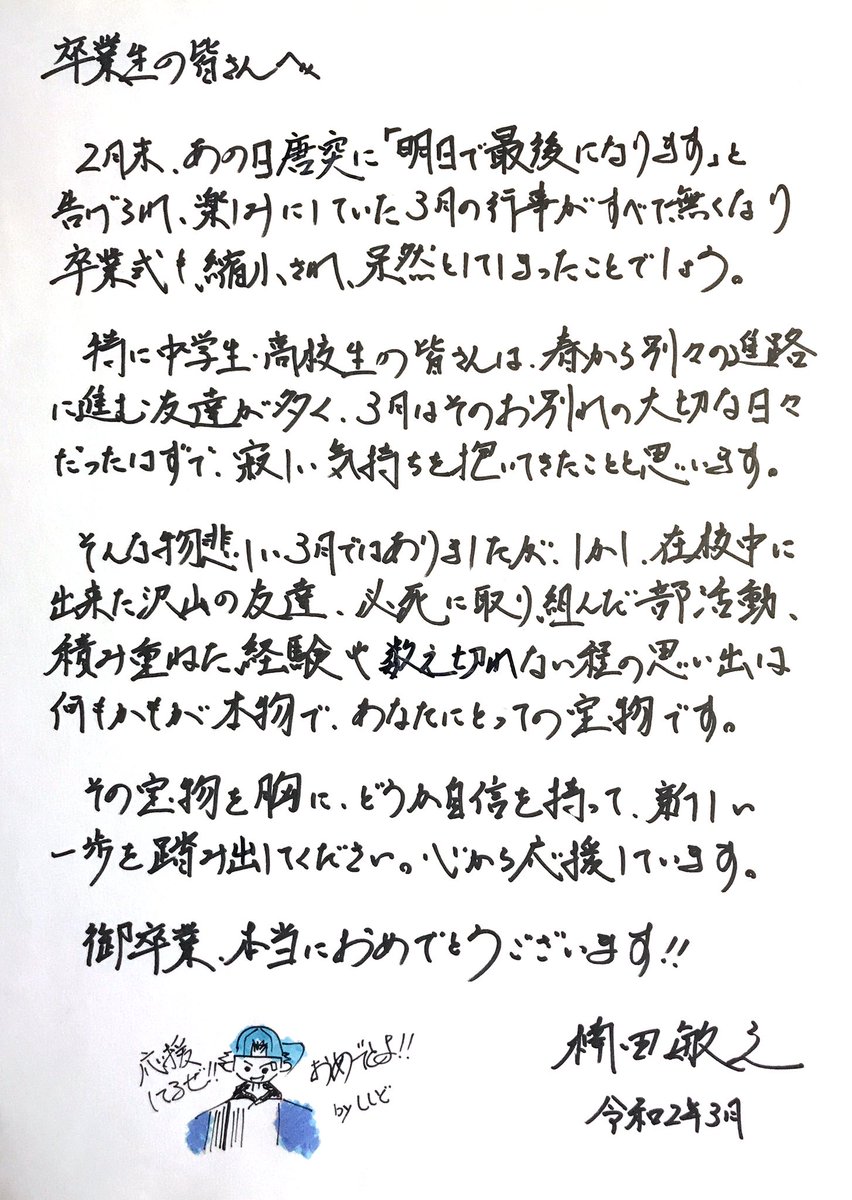 卒業生の皆さんへ
2月末、あの日唐突に「明日で最後になります」と
告げられ、楽しみにしていた3月の行事がすべて無くなり
卒業式も縮小され、呆然としてしまったことでしょう。
特に中学生・高校生の皆さんは、春から別々の進路
に進む友達が多く、3月はそのお別れの大切な日々
だったはずで、寂しい気持ちを抱いてきたことと思います。
そんな物悲しい3月ではありましたが、しかし、在校中に
出来た沢山の友達、必死に取り組んだ部活動、
積み重ねた経験や数え切れない程の思い出は
何もかもが本物で、あなたにとっての宝物です。
その宝物を胸に、どうか自信を持って、新しい
一歩を踏み出してください。心から応援しています。
御卒業、本当におめでとうございます!!
応援
してるぜ!!
おめでとよ!!
byししど
楠田敏之
令和2年3月